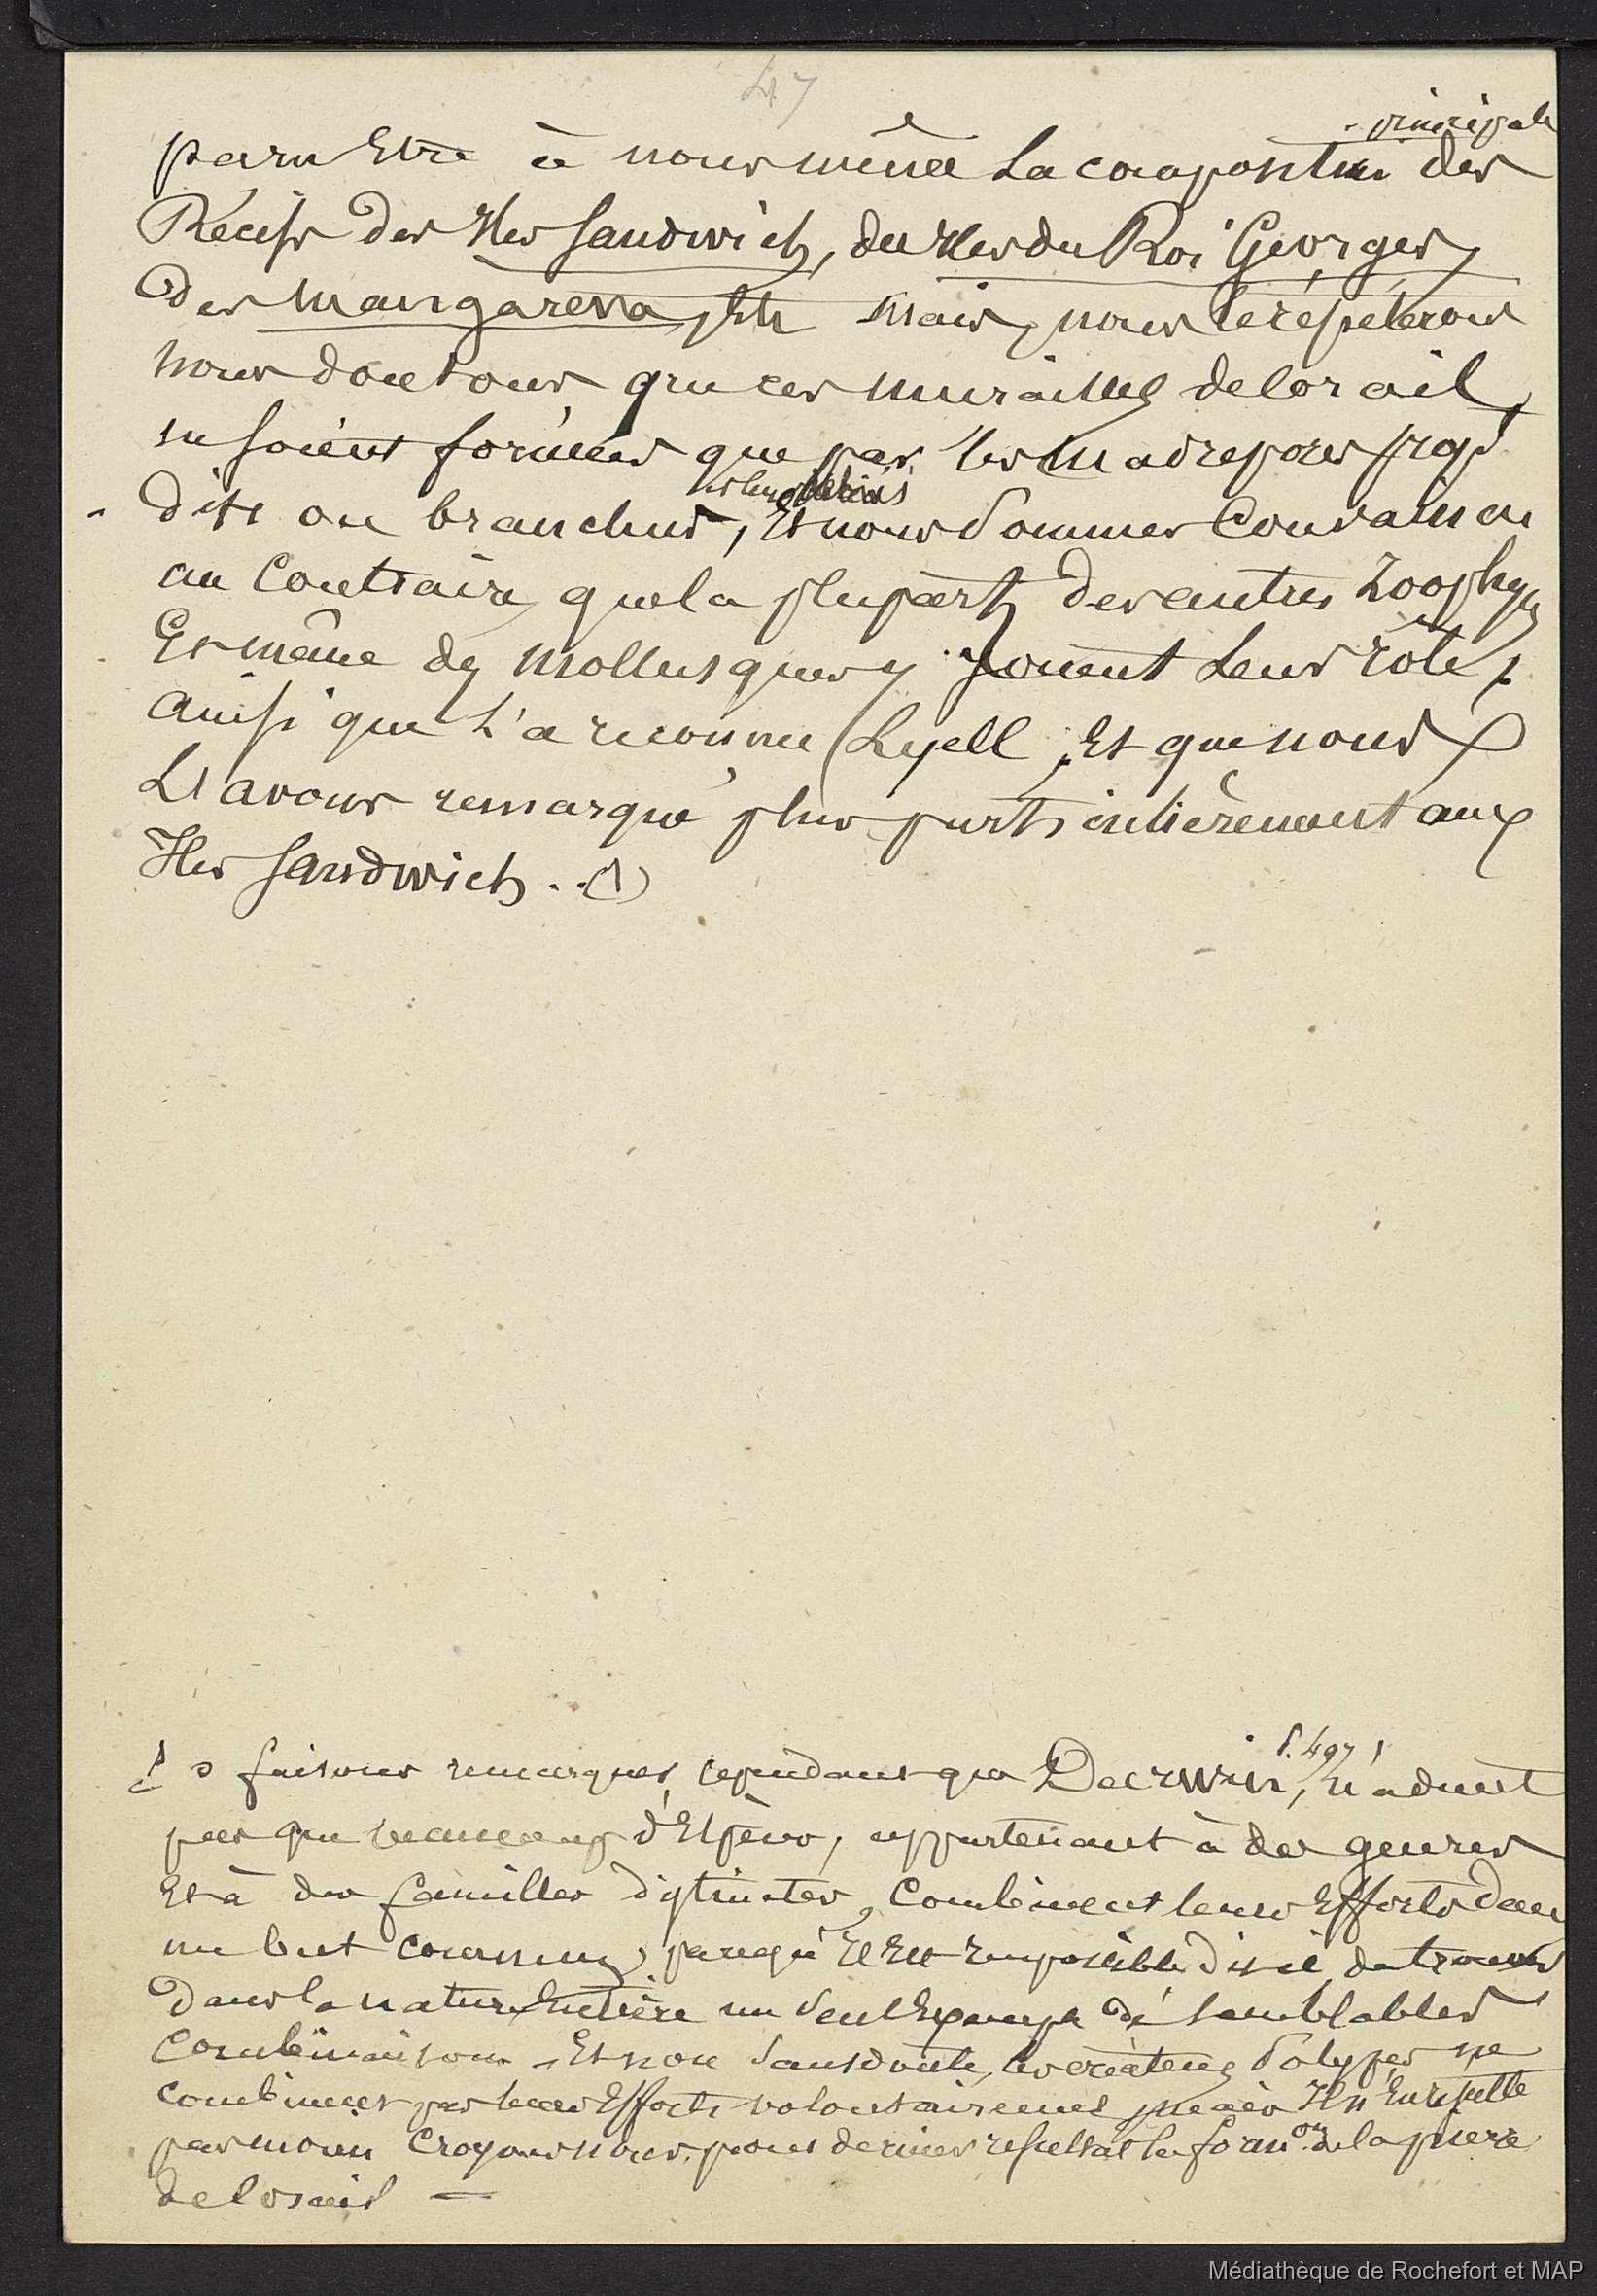 47
principale
paru Etre à nous même La composition des
Récifs des Iles Sandwich, des Iles du Roi Georges,
des Mangareva, Etc mais, nous le répéterons
nous doutons que ces murailles de Corail,
ne soient formées que par les Madrepores propt
dits ou branchus, Et nous sommes Convaincu
au Contraire, que la plupart des autres Zoophyt
Et même des Mollusques y jouent Leur rôle,
Ainsi que L'a reconnu Lyell, Et que nous
L'avons remarqué plus particulièrement aux
Iles Sandwich. . (1)
P. 497
1 faisons remarquer cependant que Darwin, n'admet
pas que beaucoup d'Espèces, appartenant à des genres
Et à des familles distinctes, Combinent leurs Efforts dans
un but commun, parcequ'il Est Impossible dit-il, de trouver
Dans la nature Entière un seul Exemple de semblables
Combinaisons - Et non sans doute, les créateurs Polypes ne
combinent pas leurs Efforts volontairement mais Il n'En résulte
pas moins Croyons nous, pour dernier resultat la formon de la pierre
de Corail —
Médiathèque de Rochefort et MAP